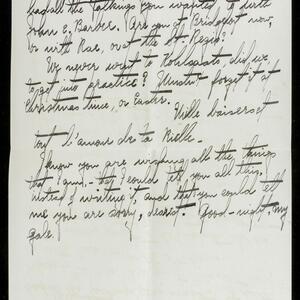 had all the talkings you wanted to with
John E. Barber. Are you at Bridgeport now,
or with Rae, or at the St. Regis?
We never went to Kohlspats, did we
to get into practice? Mustn't forget it at
Christmas time, or Easter.
Mille baisers et
tout l'amour de ta Nielle—
I know you are wishing all the things
that I am,— that I could tell you all this
instead of writing it, and that you could tell
me you are sorry, dearest. Good-night, my